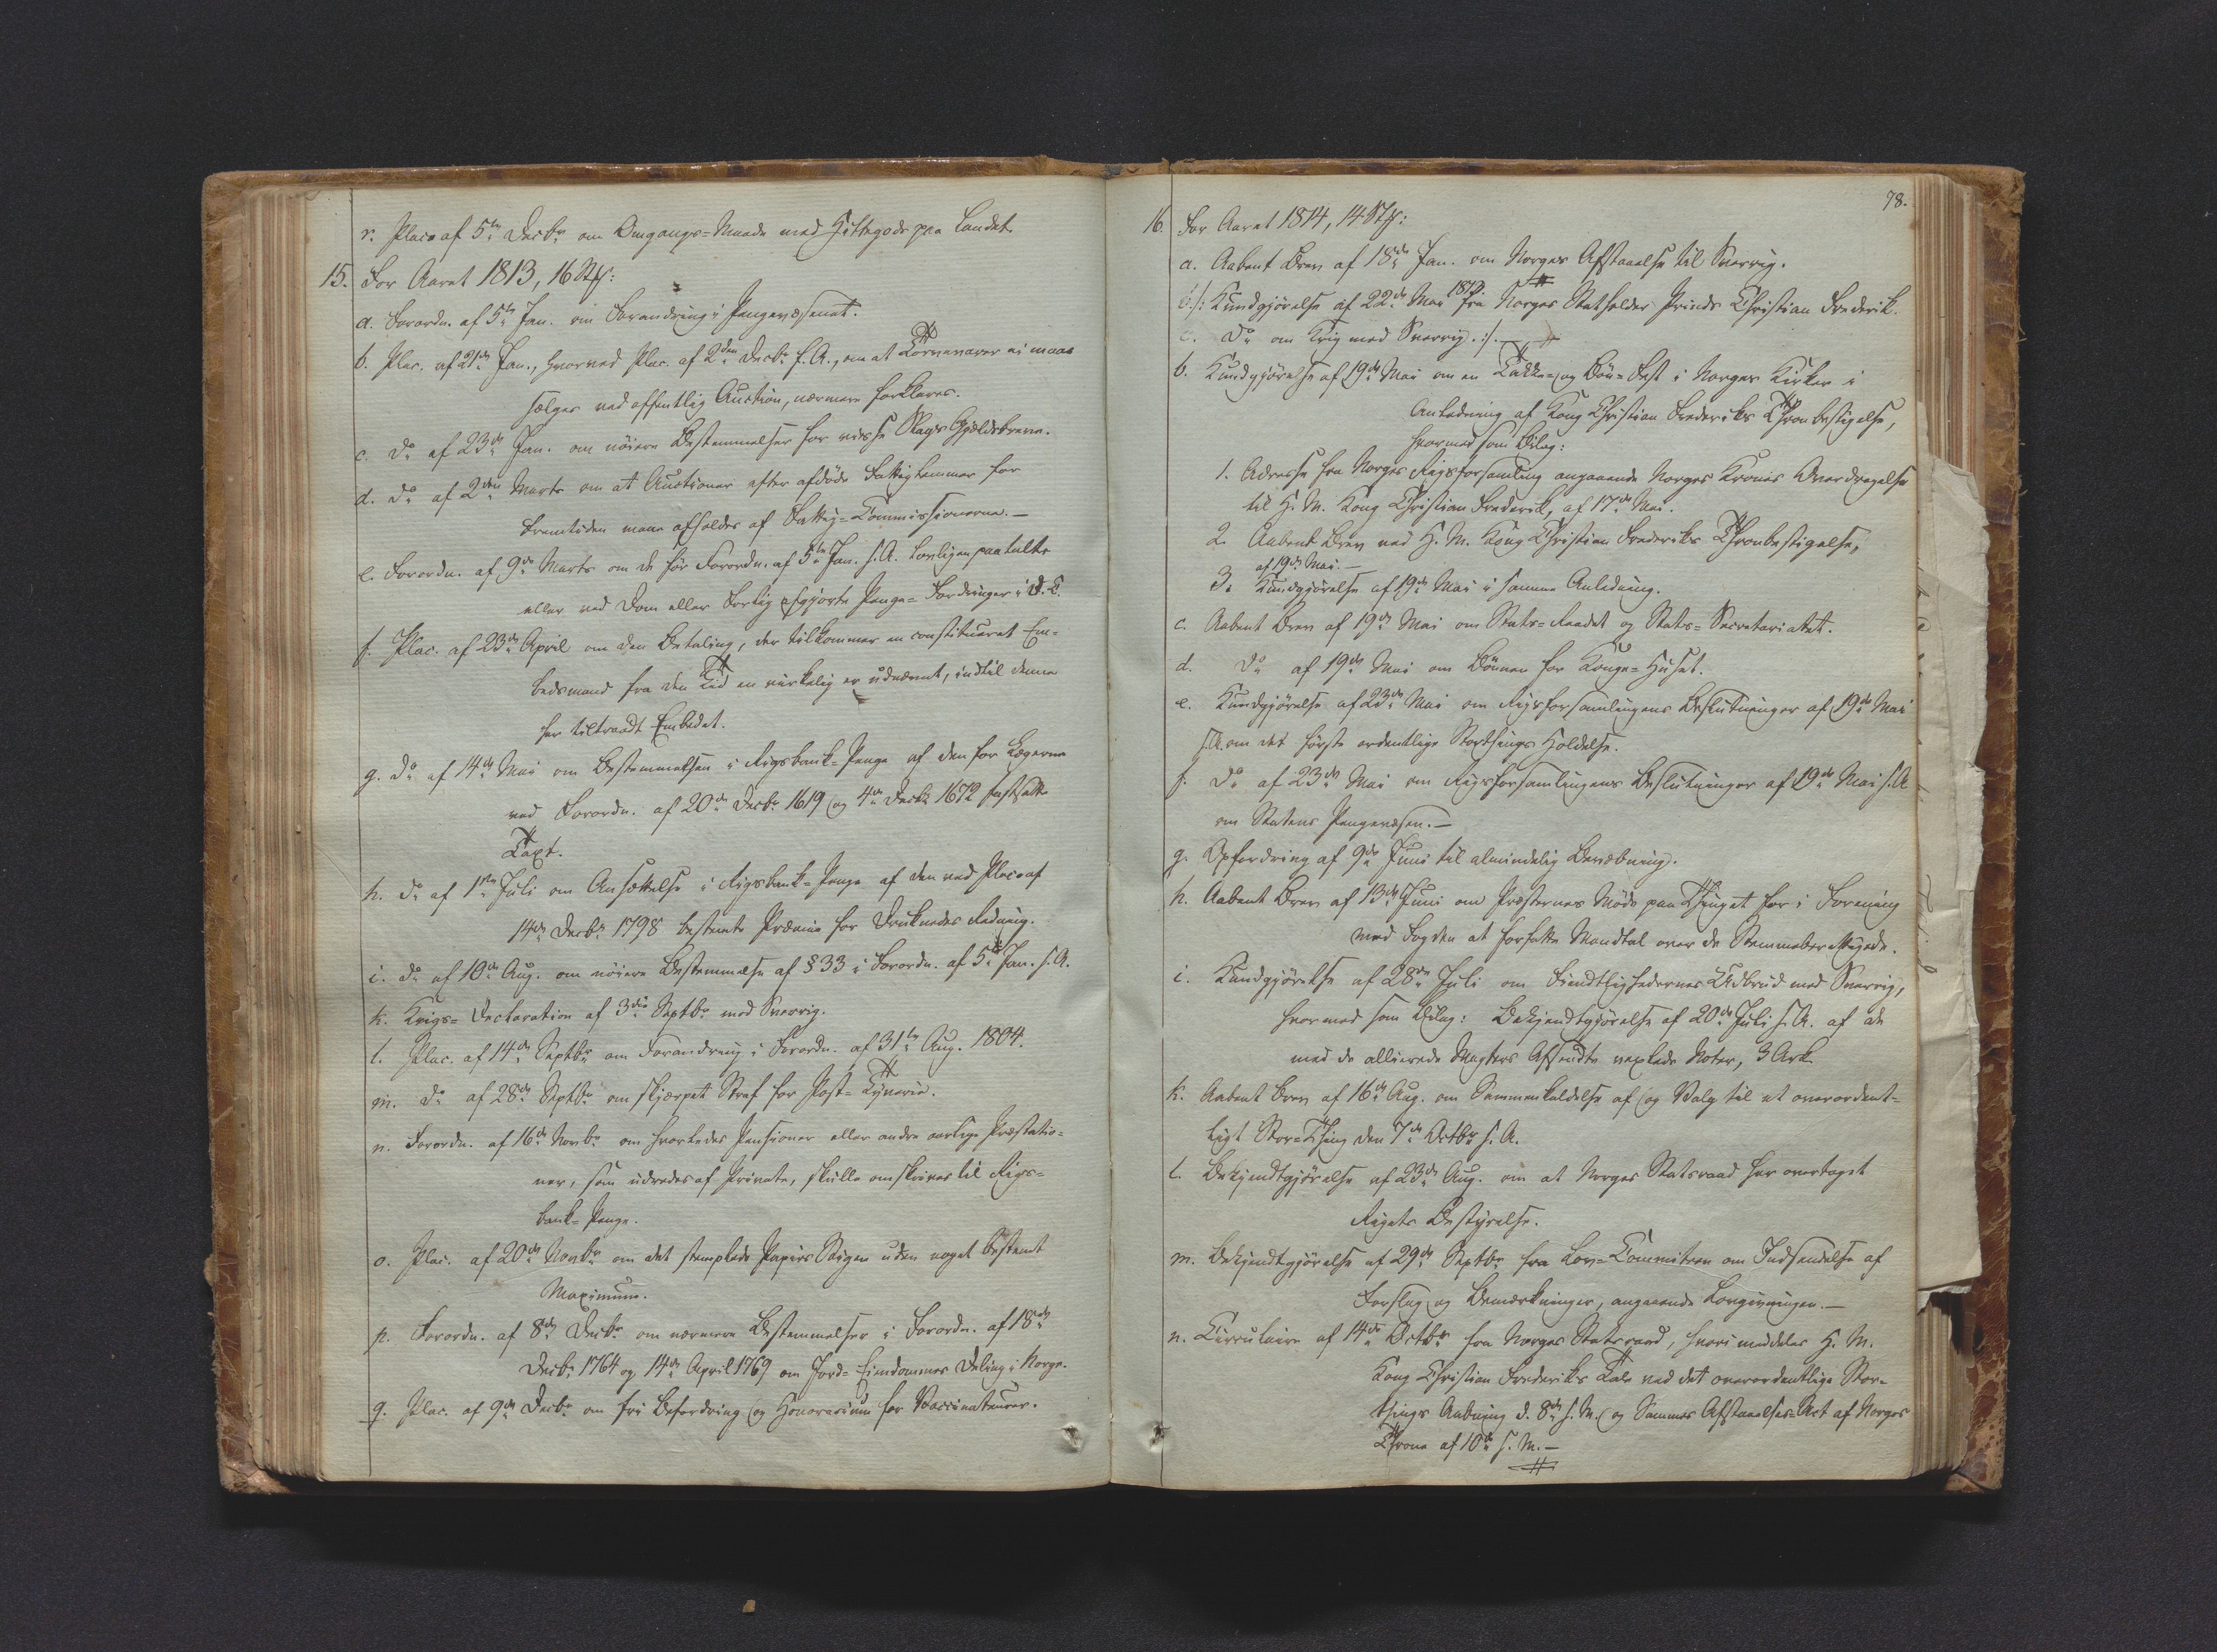 r. Plac. af 5te Decbr om Omgangs=Maade med Hittegods paa Landet.
15. For Aaret 1813, 16 Stk:
a. Forordn. af 5te Jan. om Forandring i Pengevæsenet.
b. Plac. af 21de Jan., hvorved Plac. af 2den Decbr f. A., om at Kornvarer ei maae
sælges ved offentlig Auction, nærmere forklares.
c. Do af 23de Jan. om nöiere Bestemmelser for visse Slags Gjeldsbreve.
d. Do af 2den Marts om at Auctioner efter afdöde Fattiglemmer for
Fremtiden maae afholdes af Fattig=Commissionerne.—
e. Forordn. af 9de Marts om de för Forordn. af 5te Jan. s. A. lovligen paatalte
eller ved Dom eller Forlig afgjorte Penge=Fordringer i D. C.
f. Plac. af 23de April om den Betaling, der tilkommer en constitueret Em=
bedsmand fra den Tid en virkelig er udnævnt, indtil denne
har tiltraadt Embedet.
g. Do af 14de Mai om Bestemmelsen i Rigsbank=Penge af den for Lægerne
ved Forordn. af 20de Decbr 1619 og 4de Decbr 1672 fastsatte
Taxt.
h. Do af 1ste Juli om Ansættelse i Rigsbank=Penge af den ved Plac. af
14de Decbr 1798 bestemte Præmie for Druknedes Redning.
i. Do af 10de Aug. om nöiere Bestemmelse af § 33 i Forordn. af 5te Jan. s. A.
k. Krigs=Declaration af 3die Septbr mod Sverrig.
l. Plac. af 14de Septbr om Forandring i Forordn. af 31te Aug. 1804.
m. Do af 28de Septbr om skjærpet Straf for Post=Tyverie.
n. Forordn. af 16de Novbr om hvorledes Pensioner eller andre aarlige Præstatio=
ner, som udredes af Private, skulle omskrives til Rigs=
bank=Penge.
o. Plac. af 20de Novbr om det stemplede Papirs Stigen uden noget bestemt
Maximum.
p. Forordn. af 8de Decbr om nærmere Bestemmelser i Forordn. af 18de
Decbr 1764 og 14de April 1769 om Jord=Eiendommes Deling i Norge.
q. Plac. af 9de Decbr om fri Befordring og Honorarium for Vaccinateurer.
78.
16. For Aaret 1814, 14 Stk:
a. Aabent Brev af 18de Jan. om Norges Afstaaelse til Sverrig.
b. /: Kundgjörelse af 22de Mai 1813. fra Norges Statholder Prinds Christian Frederik.
c. Do om Krig med Sverrig. :/.—
b. Kundgjörelse af 19de Mai om en Takke= og Bön=Fest i Norges Kirker i
Anledning af Kong Christian Frederiks Thronbestigelse,
hvormed som Bilag:
1. Adresse fra Norges Rigsforsamling angaaende Norges Krones Overdragelse
til H. M. Kong Christian Frederik, af 17de Mai.
2. Aabent Brev ved H. M. Kong Christian Frederiks Thronbestigelse,
af 19de Mai.—
3. Kundgjörelse af 19de Mai i samme Anledning.
c. Aabent Brev af 19de Mai om Stats=Raadet og Stats=Secretariatet.
d. Do af 19de Mai om Bönnen for Konge=Huset.
e. Kundgjörelse af 23de Mai om Rigsforsamlingens Beslutninger af 19de Mai
s. A. om det förste ordentlige Storthings Holdelse.
f. Do af 23de Mai om Rigsforsamlingens Beslutninger af 19de Mai s. A
om Statens Pengevæsen.—
g. Opfordring af 9de Juni til almindelig Bevæbning.
h. Aabent Brev af 13de Juni om Præsternes Möde paa Thinget for i Forening
med Fogden at forfatte Mandtal over de Stemmeberettigede.
i. Kundgjörelse af 28de Juli om Fiendtlighedernes Udbrud med Sverrig,
hvormed som Bilag: Bekjendtgjörelse af 20de Juli s. A. af de
med de allierede Magters Afsendte vexlede Noter, 3 Ark.
k. Aabent Brev af 16de Aug. om Sammenkaldelse af og Valg til et overordent=
ligt Stor=Thing den 7de Octbr s. A.
l. Bekjendtgjörelse af 23de Aug. om at Norges Statsraad har overtaget
Rigets Bestyrelse.
m. Bekjendtgjörelse af 29de Septbr fra Lov=Committeen om Indsendelse af
Forslag og Bemærkninger, angaaende Lovgivningen.—
n. Circulaire af 14de Octbr fra Norges Statsraad, hvori meddeles H. M.
Kong Christian Frederiks Tale ved det overordentlige Stor=
things Aabning d. 8de s. M. og Sammes Afstaaelses=Act af Norges
Throne af 10de s. M.—